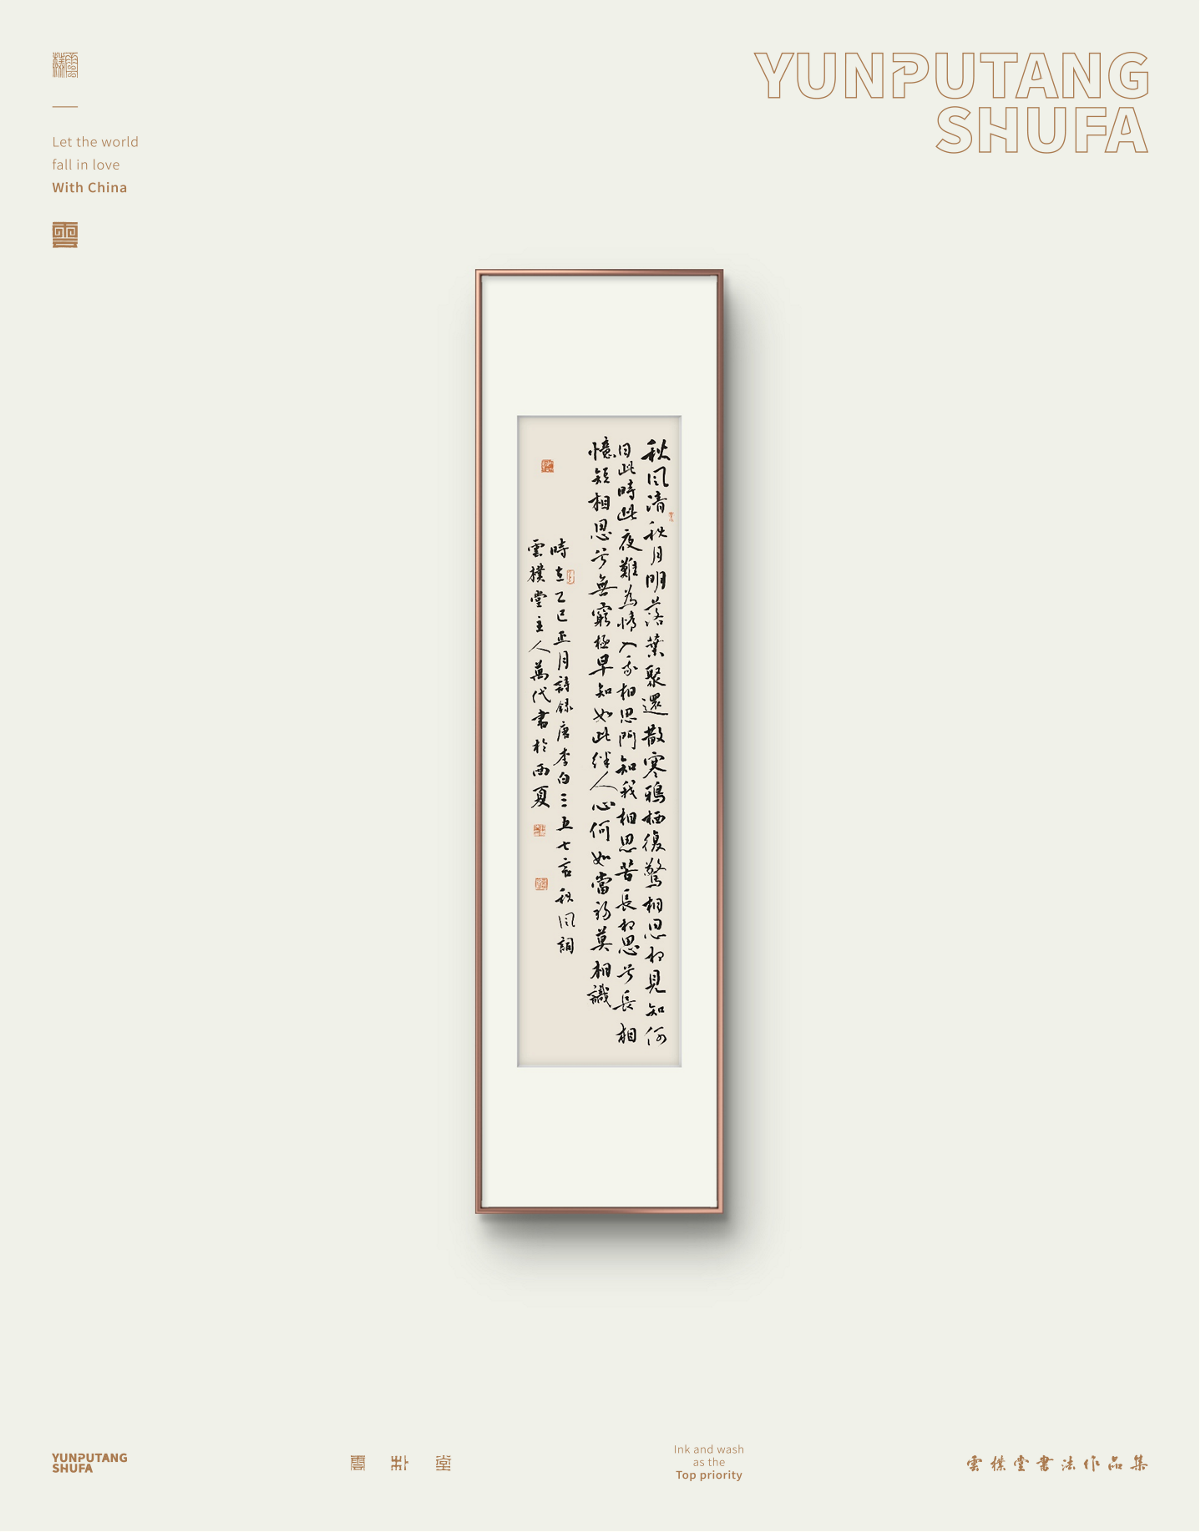 YUNPUTANG
SHUFA
Let the world
fall in love
With China
雲
秋风清秋月明落葉聚還散寒鴉栖復驚相思相見知何
日此時此夜難為情入我相思門知我相思苦長相思兮長相
憶短相思兮無窮極早知如此絆人心何如當初莫相識
時在乙巳正月詩録唐李白三五七言秋风詞
雲樸堂主人萬代書於西夏
YUNPUTANG
SHUFA
雲朴堂
Ink and wash
as the
Top priority
雲樸堂書法作品集